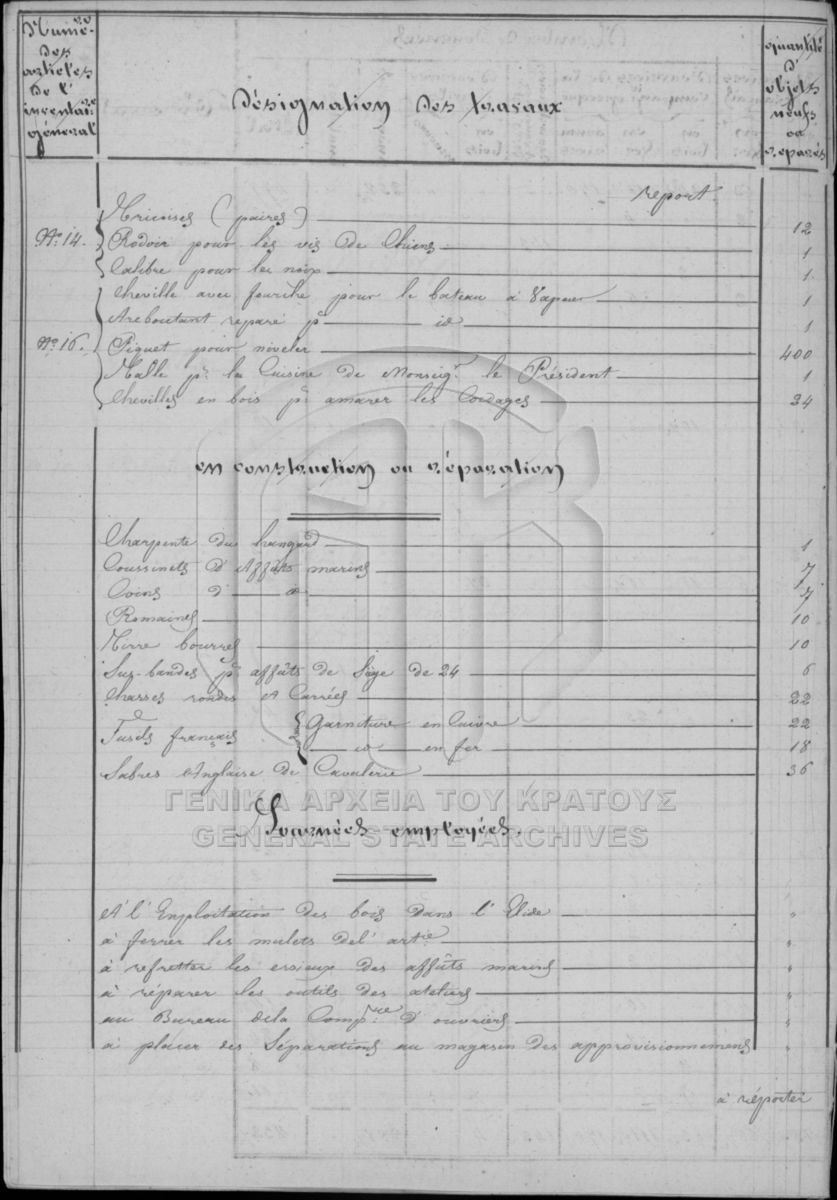 Numé-
ros
des
articles
de l'
inventaire
général
désignation des travaux
quantité
d'
objets
neufs
ou
réparés
report.
Tricoises (paires) 12
No. 14. Rodoir pour les vis de Chiens 1
Calibre pour les noix 1
Cheville avec fourche pour le bateau à Vapeur 1
Arcboutant reparé pr id 1
No. 16. Piquet pour niveler 400
Malle pr. la Cuisine de Monseigr. le Président 1
Chevilles en bois pr amarer les Cordages 24
en construction ou réparation
Charpente du hangard 1
Coussinets d'Affûts marins 7
Coins d' id 7
Romaines 10
Tirre bourres 10
Sus-bandes pr affûts de Siège de 24 6
Chasses rondes et Carrées 22
Fusils français { Garniture en Cuivre 22
id en fer 18
Sabres Anglaise de Cavalerie 36
ΓΕΝΙΚΑ ΑΡΧΕΙΑ ΤΟΥ ΚΡΑΤΟΥΣ
GENERAL STATE ARCHIVES
Journées employées.
A l'Exploitation des bois dans l'Ilide "
à ferrer les mulets del' artie "
à refretter les essieux des affûts marins "
à réparer les outils des ateliers "
au Bureau dela Compnie d'ouvriers "
à placer des Séparations au magasin des approvisionnemens "
à réporter